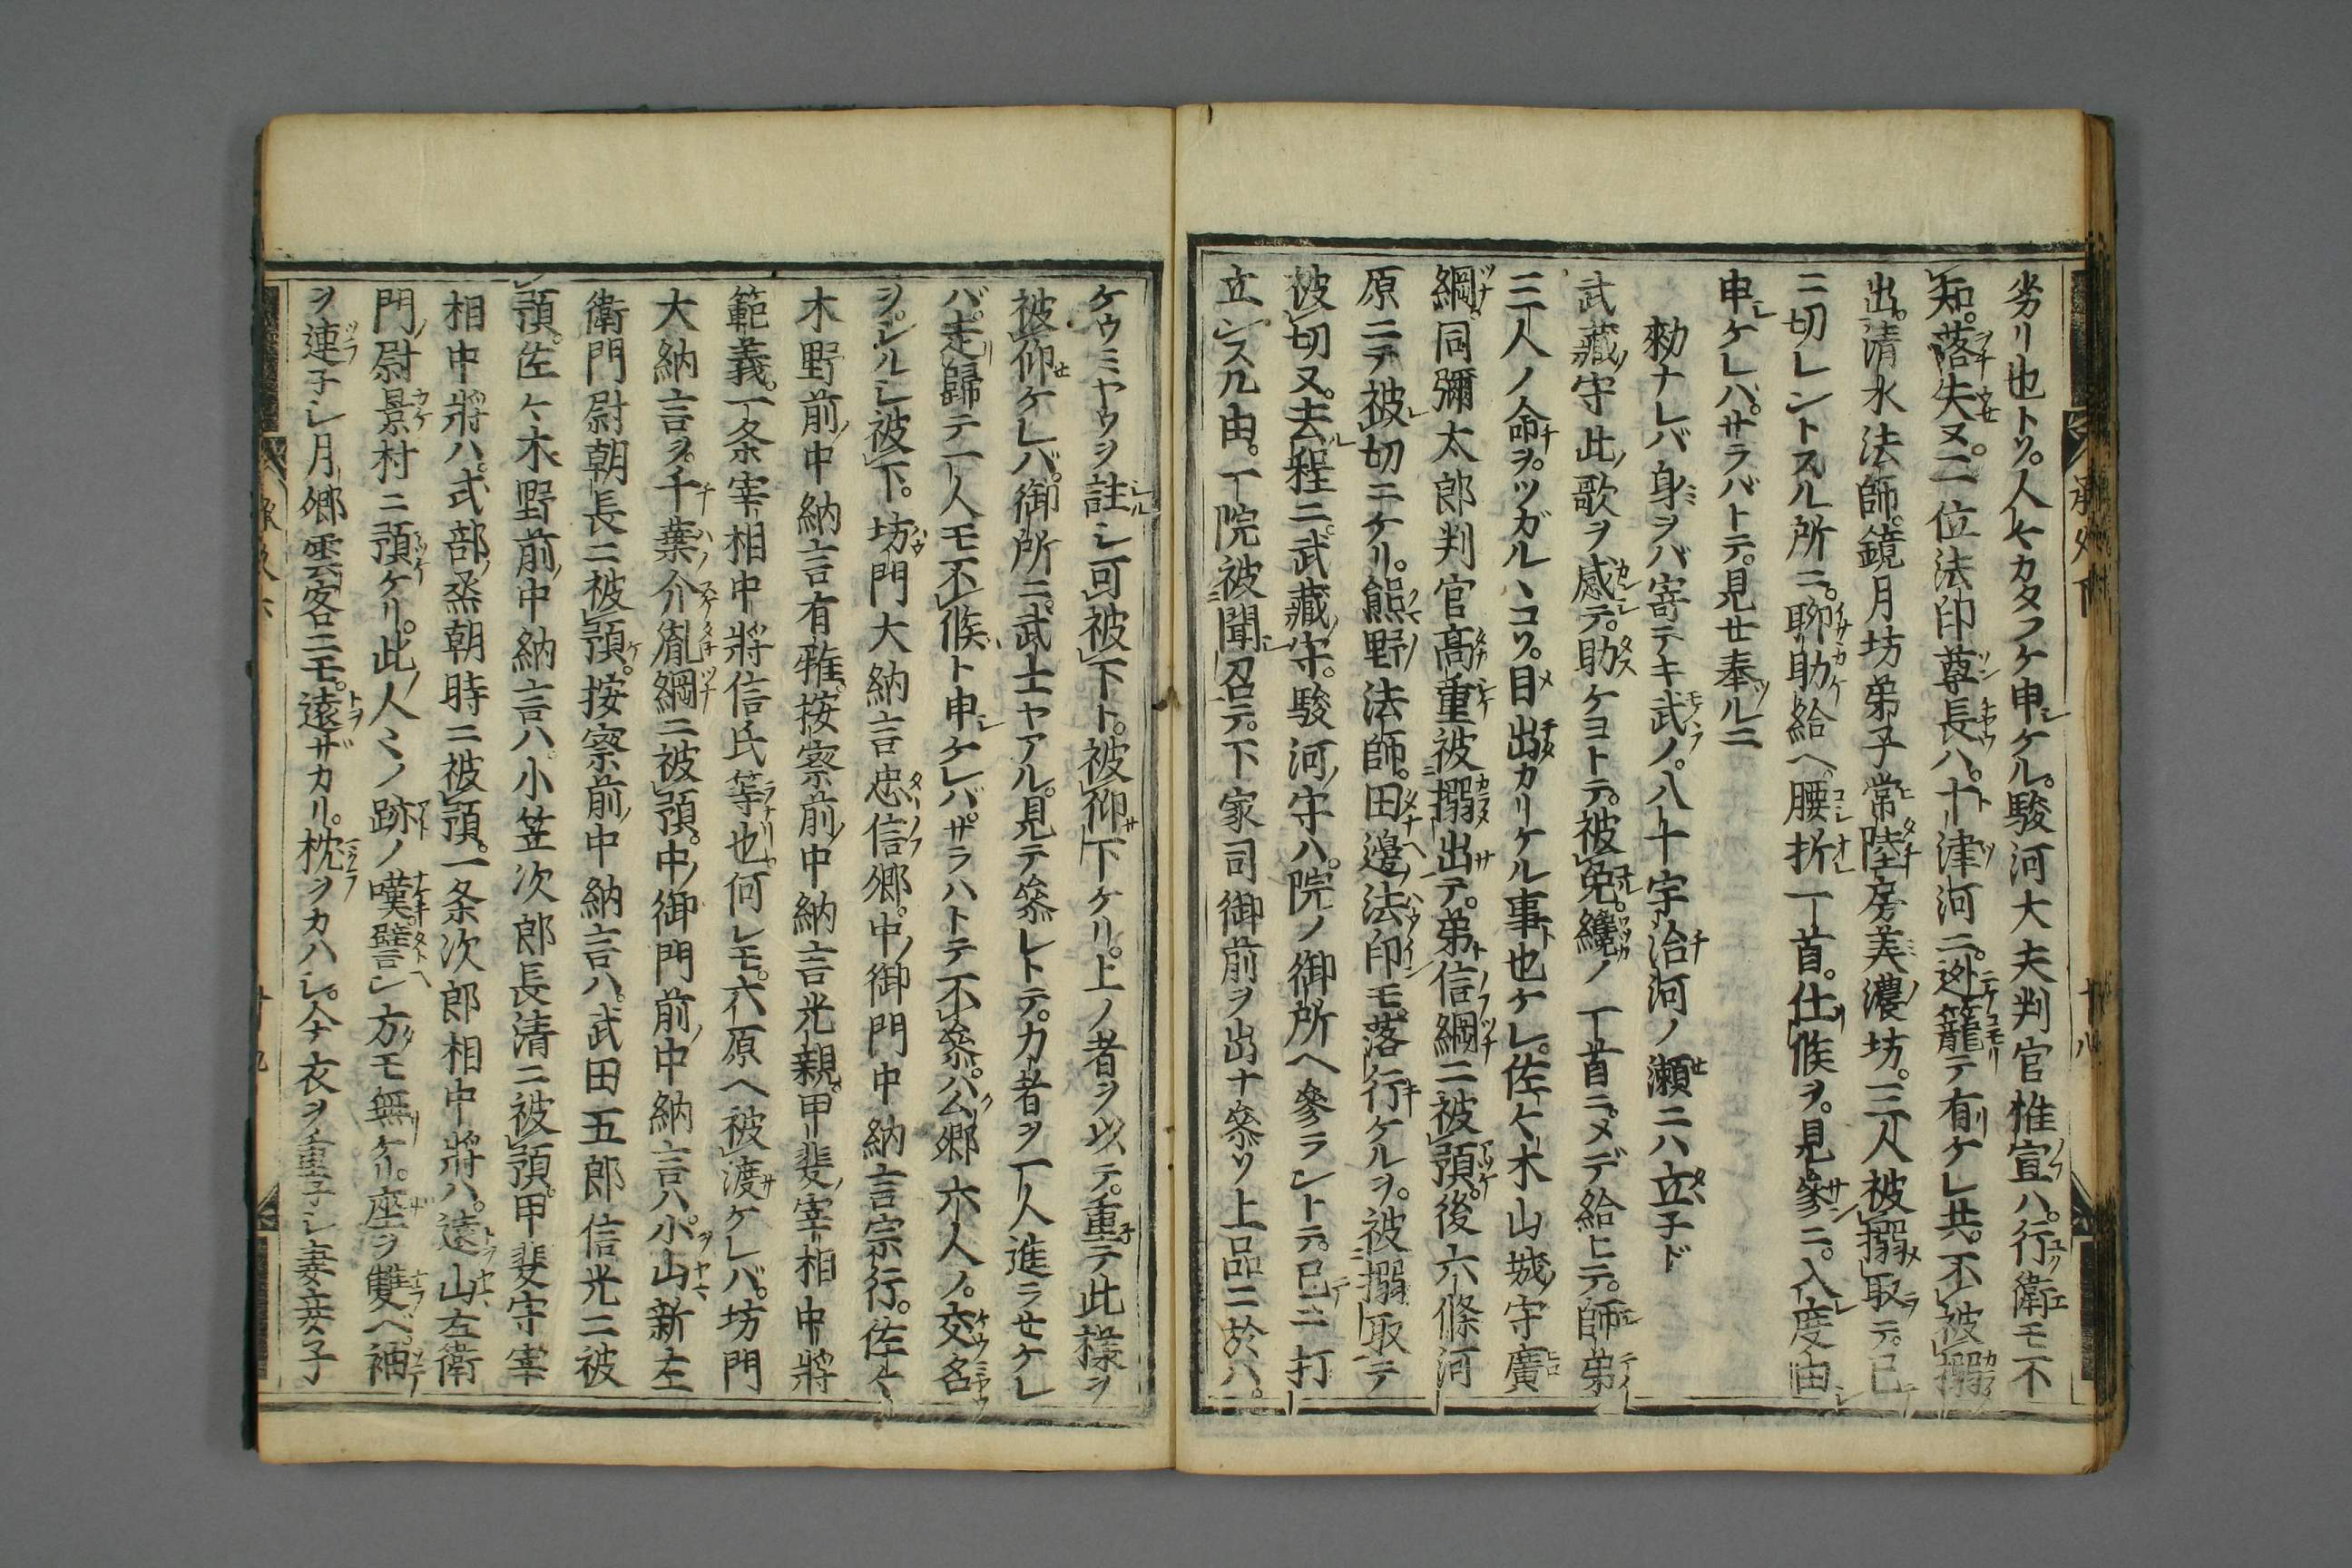 劣リ也トソ。人々カタフケ申ケル。駿河大夫判官惟宣ハ。行衛モ不
知。落失ヌ。二位法印尊長ハ。十津河ニ。迯籠テ有ケレ共。不被搦
出。清水法師。鏡月坊弟子常陸房美濃坊。三人被搦取テ。已
ニ切レントスル所ニ。聊助給ヘ。腰折一首。仕候ヲ。見參ニ。入度由
申ケレバ。サラバトテ。見セ奉ルニ
勅ナレバ身ヲバ寄テキ武ノ。八十宇治河ノ瀬ニハ立子ド
武藏守此歌ヲ感テ。助ケヨトテ。被免。纔ノ一首ニ。メデ給ヒテ。師弟
三人ノ命ヲ。ツガルヽコソ。目出カリケル事也ケレ。佐々木山城守廣
綱。同彌太郎判官髙重被搦出テ。弟信綱ニ被預。後六條河
原ニテ被切ニケリ。熊野法師。田邊法印モ。落行ケルヲ。被搦取テ
被切ヌ。去程ニ。武藏守。駿河守ハ。院ノ御所ヘ參ラントテ。已ニ打
立ンスル由。一院被聞召テ。下家司御前ヲ出ナ參ソ上品ニ於ハ。
ケウミヤウヲ註シ可被下ト。被仰下ケリ。上ノ者ヲ以テ。重テ此様ヲ
被仰ケレバ。御所ニ。武士ヤアル。見テ參レトテ。力者ヲ一人進ラセケレ
バ。走歸テ一人モ不候ト申ケレバ。サラハトテ不參。公郷六人ノ。交名
ヲシルシ被下。坊門大納言忠信郷。中御門中納言宗行。佐々
木野前中納言有雅。按察前中納言光親。甲斐宰相中將
範義。一条宰相中將信氏等也。何レモ六原ヘ被渡ケレバ。坊門
大納言ヲ。千葉介胤綱ニ被預。中御門前中納言ハ。小山新左
衛門尉朝長ニ被預。按察前中納言ハ。武田五郎信光ニ被
預。佐々木野前中納言ハ。小笠次郎長清ニ被預。甲斐守宰
相中將ハ。式部丞朝時ニ被預。一条次郎相中將ハ。遠山左衛
門尉景村ニ預ケリ。此人々ノ跡ノ嘆譬ン方モ無ケリ。座ヲ雙ヘ。袖
ヲ連子シ月郷雲客ニモ。遠ザカリ。枕ヲカハシ。衣ヲ重子シ妻妾子